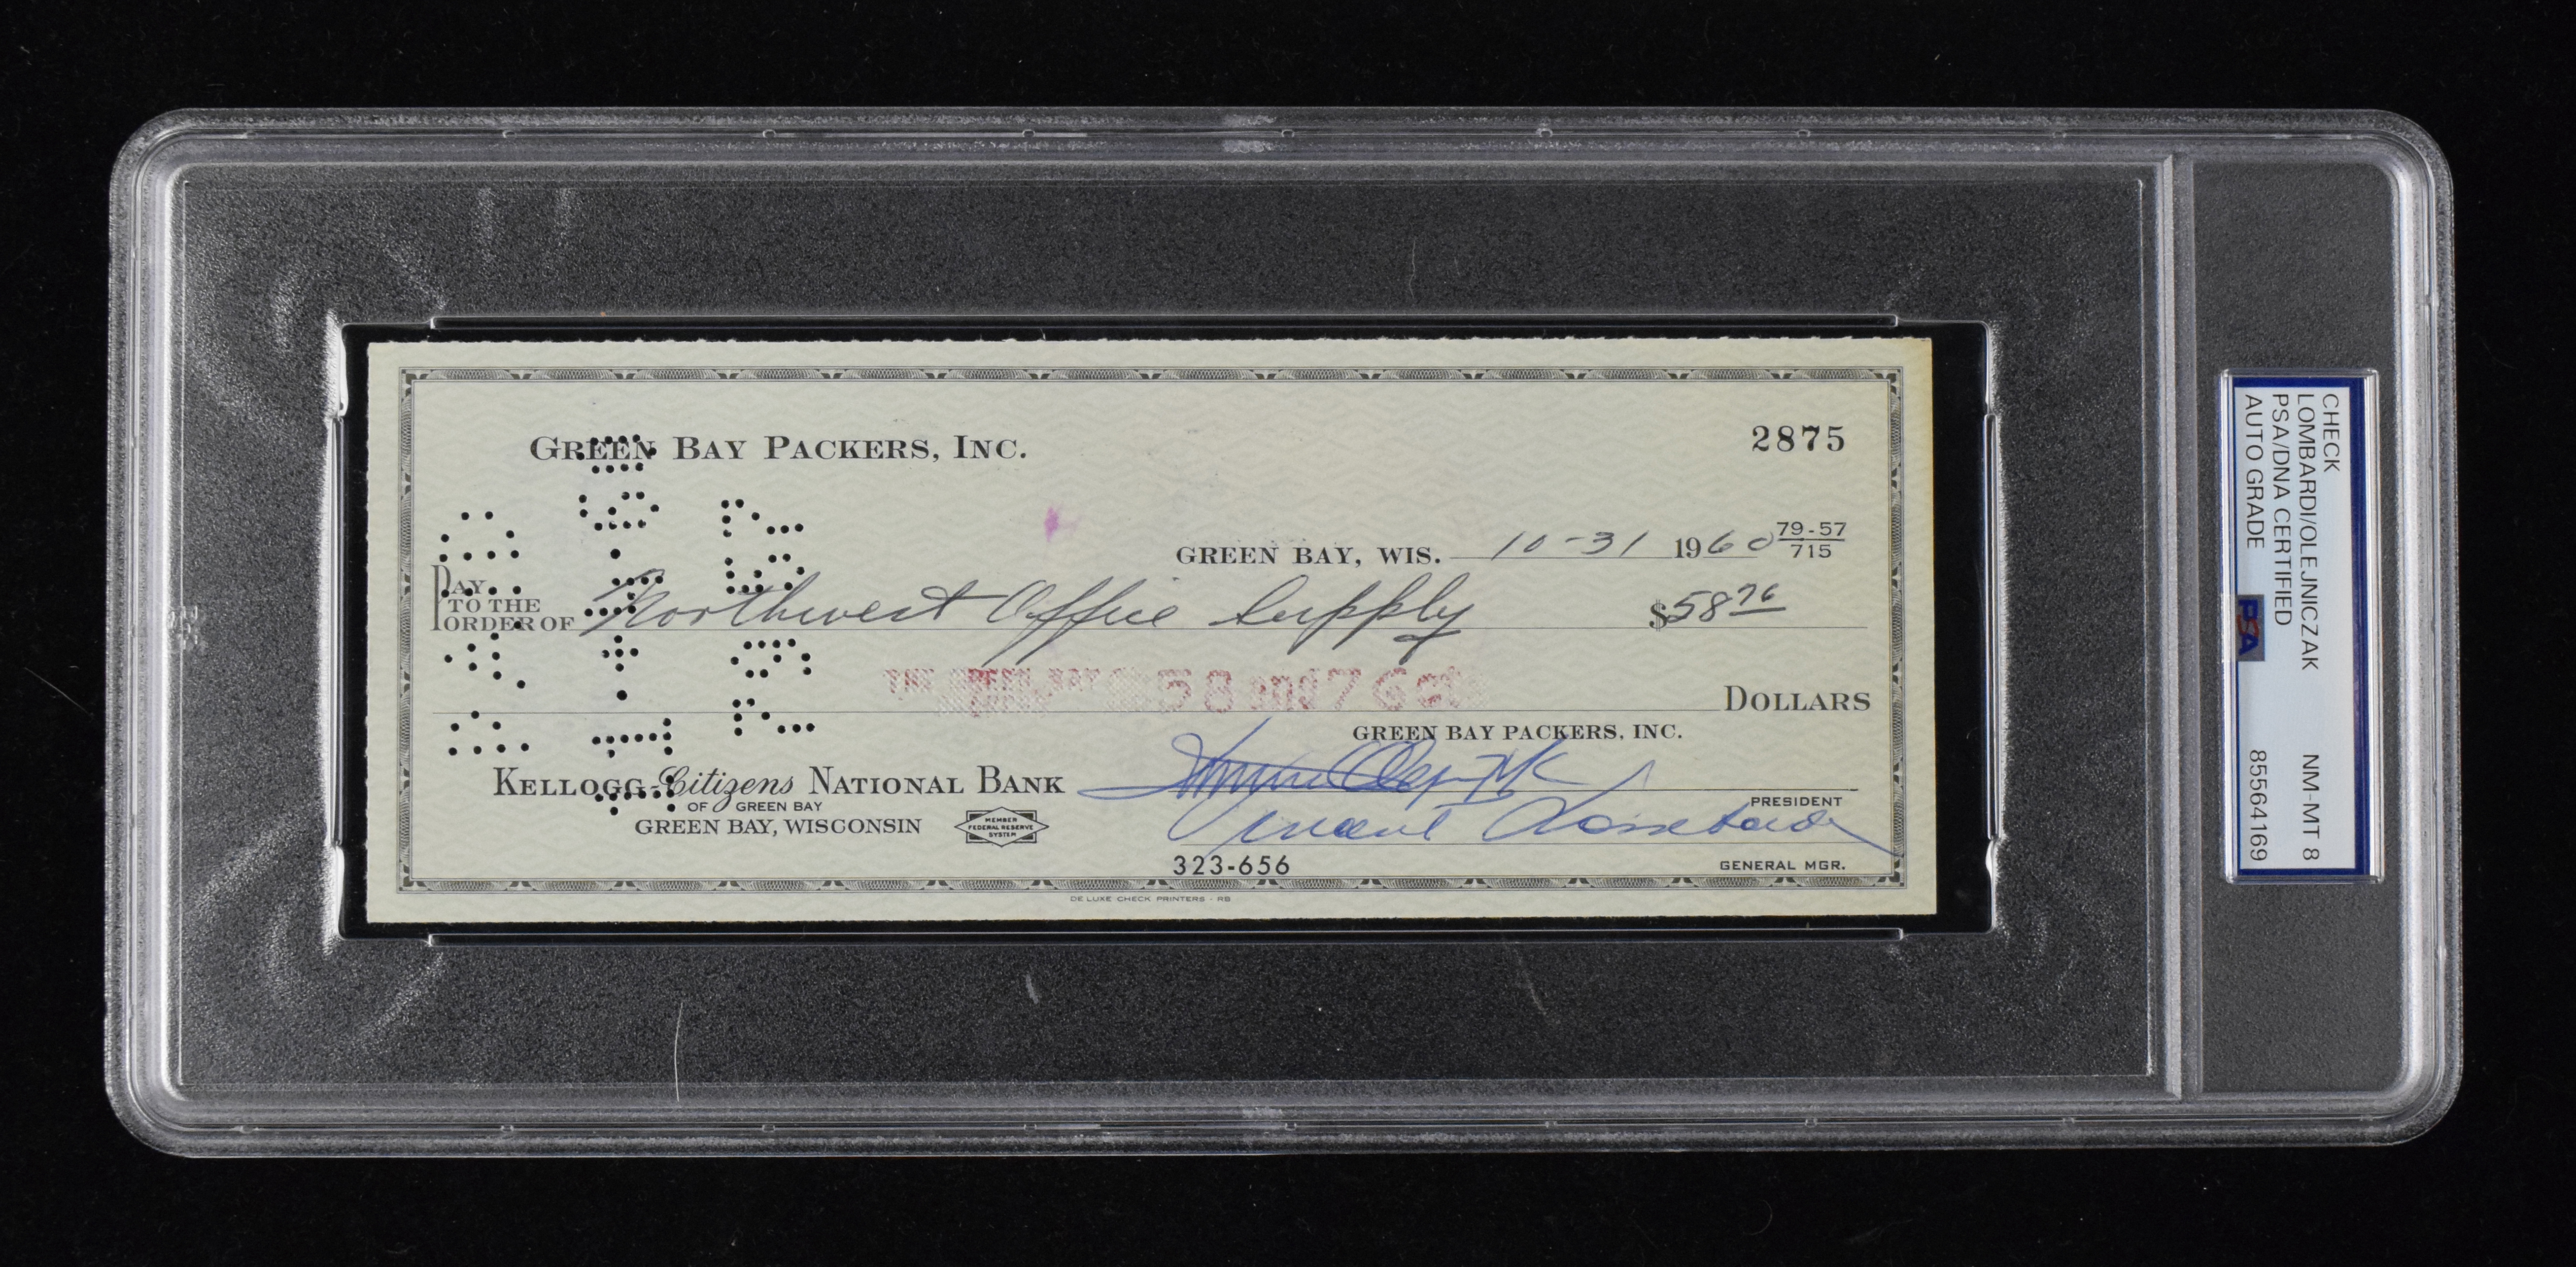 GREEN BAY PACKERS, INC.
2875
GREEN BAY, WIS. 10-31 1960 79-57
715
PAY
TO THE
ORDER OF Northwest Office Supply $58 76
THE GREEN BAY 58 and 76 cts
DOLLARS
GREEN BAY PACKERS, INC.
KELLOGG-Citizens NATIONAL BANK
OF GREEN BAY
GREEN BAY, WISCONSIN
MEMBER
FEDERAL RESERVE
SYSTEM
PRESIDENT
Vincent Lombardi
323-656
GENERAL MGR.
DE LUXE CHECK PRINTERS - RB
CHECK
LOMBARDI/OLEJNICZAK NM-MT 8
PSA/DNA CERTIFIED
AUTO GRADE 85564169
PSA